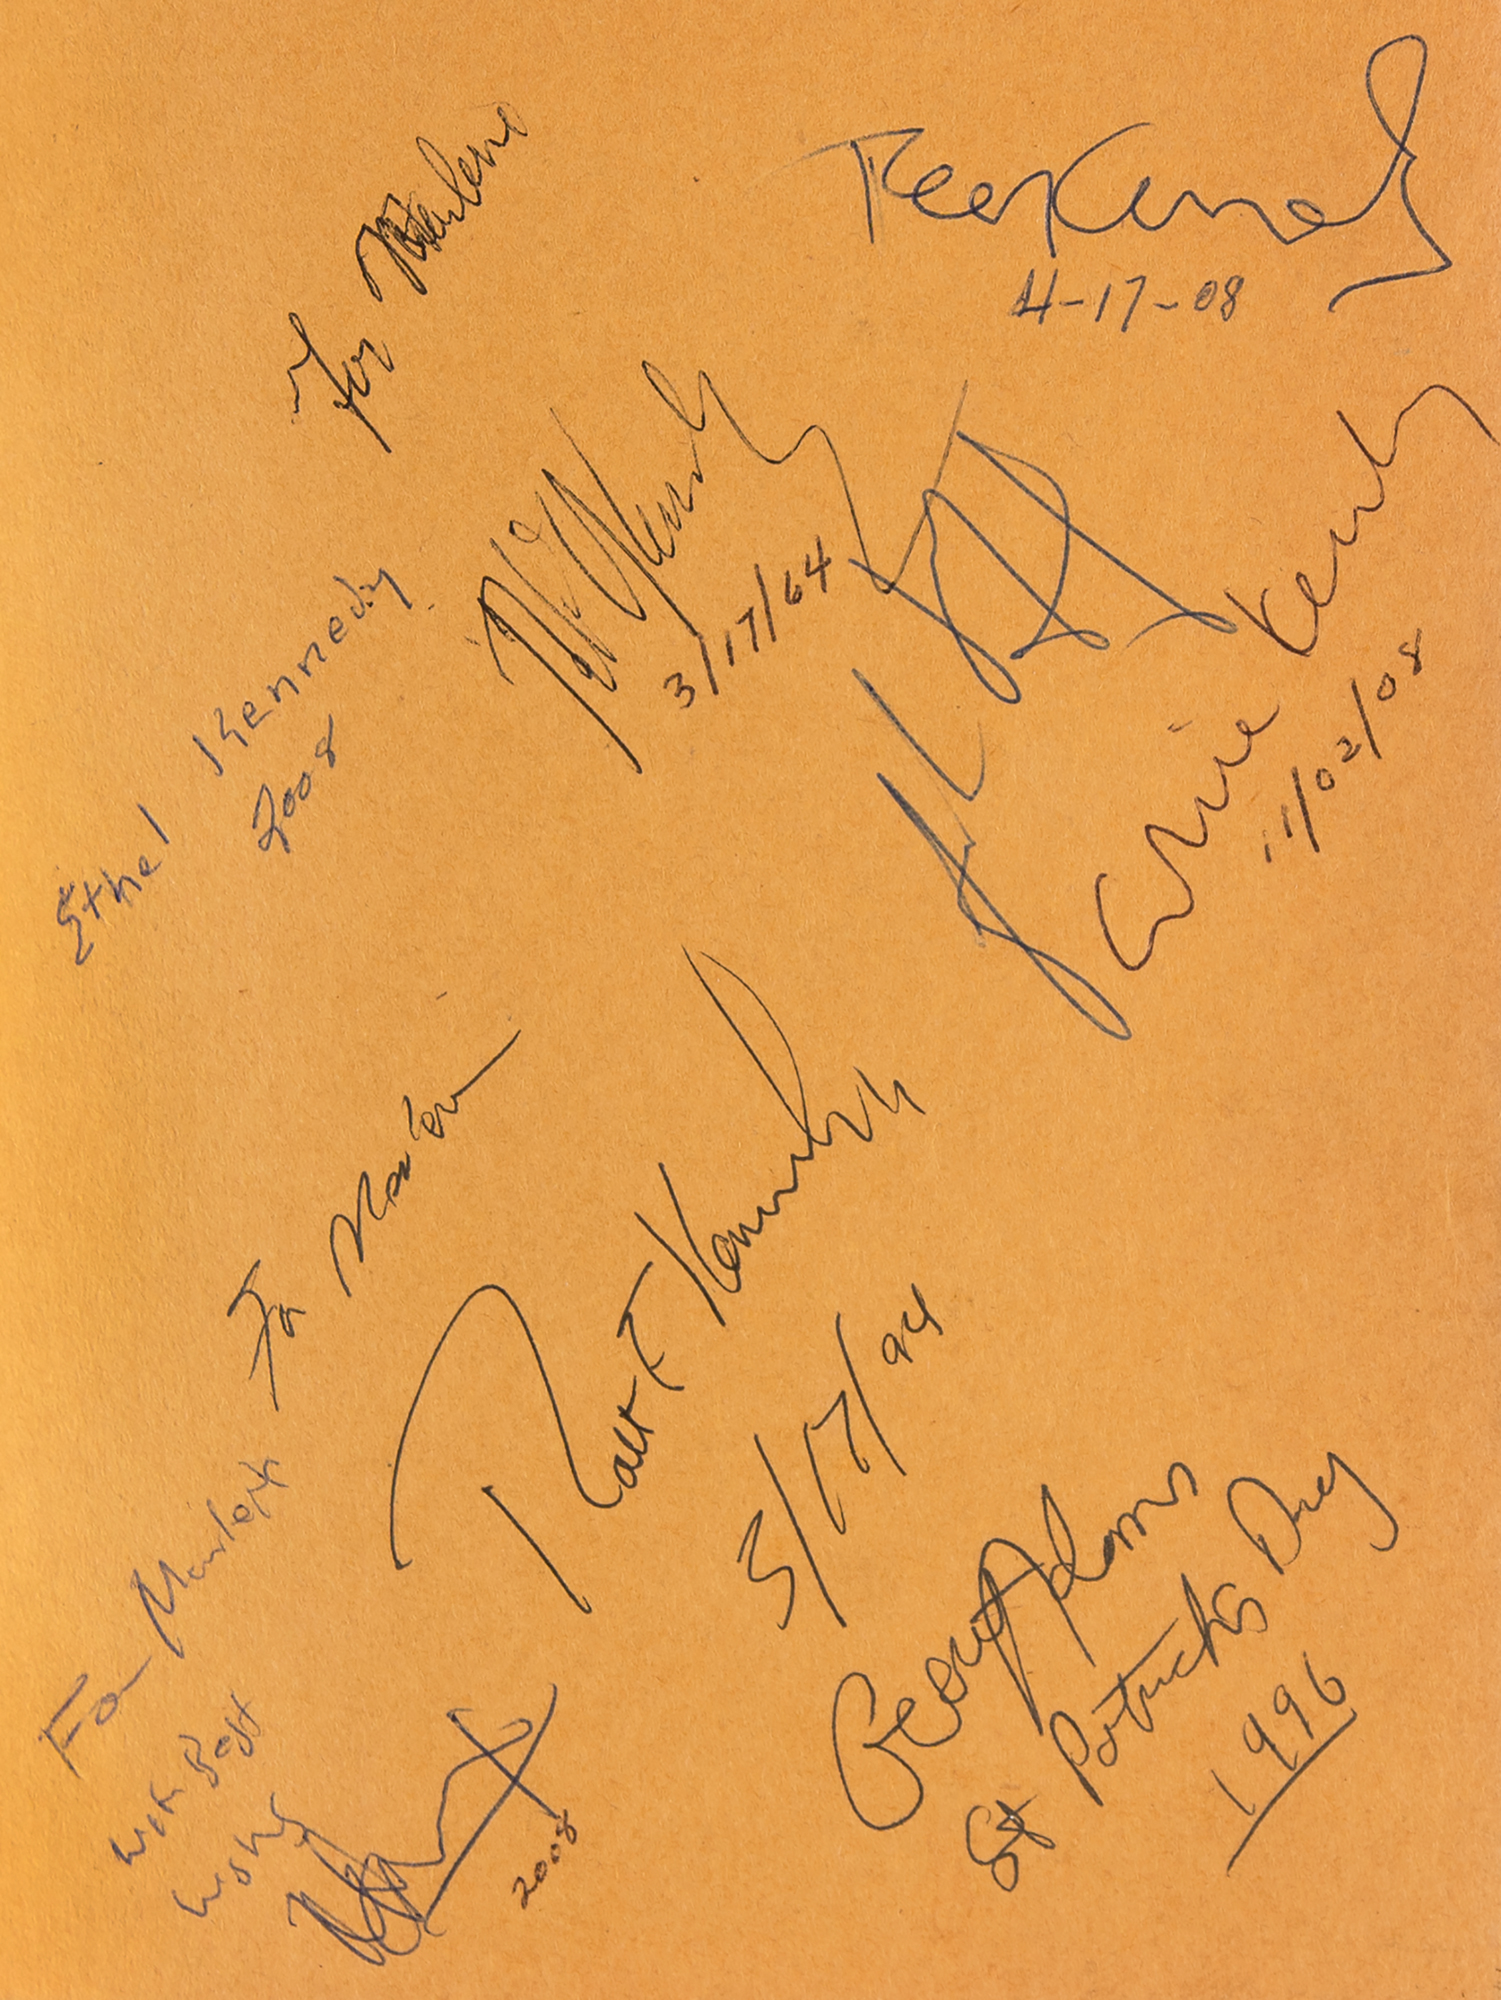 For Marlene
Kennedy
4-17-08
Kennedy
3/17/64
Ethel Kennedy
2008
Kennedy
11/02/08
For Marlene
Robt F Kennedy
3/17/94
Gerry Adams
St Patricks Day
1996
For Marlene
With Best
Wishes
2008